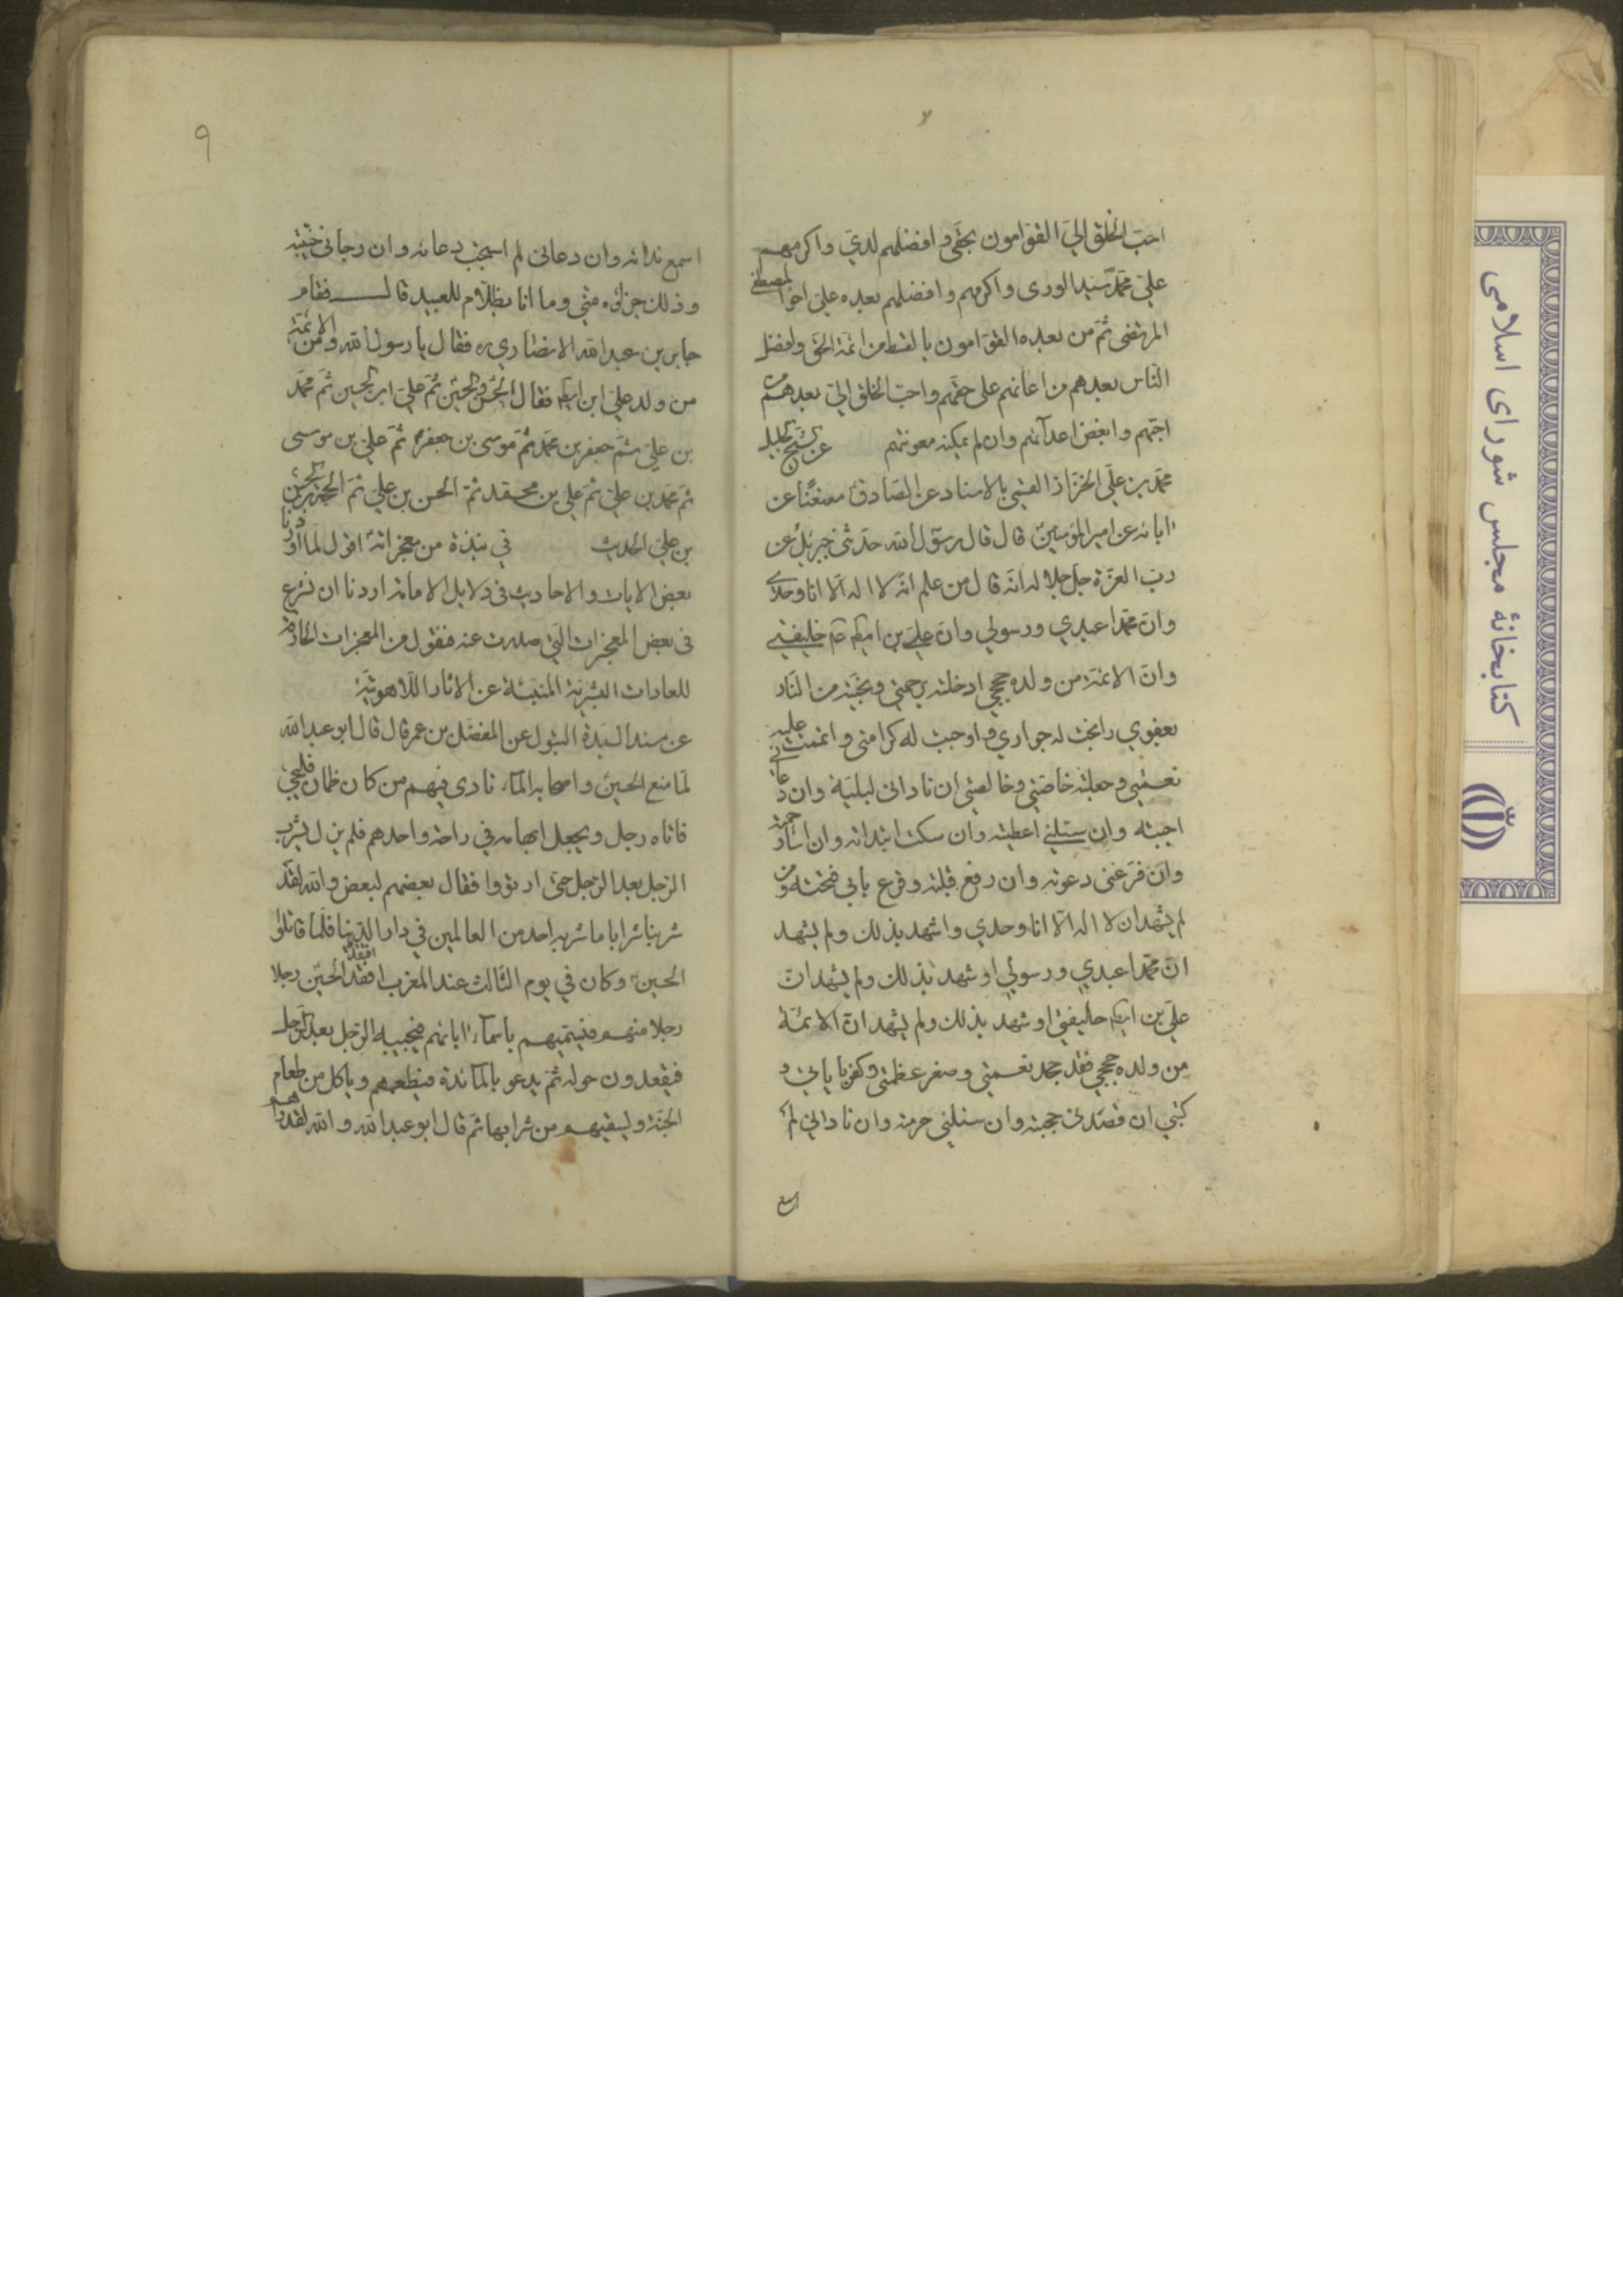 احبّ الخلق اليّ القوّامون بحقّي و افضلهم لديّ و اكرمهم
عليّ محمّد سيّد الورى و اكرمهم و افضلهم بعده عليّ اخو المصطفى
المرتضى ثمّ من بعده القوّامون بالقسط من ائمّة الحق و افضل
النّاس بعدهم من اعانهم على حقّهم و احبّ الخلق اليّ بعدهم من
احبّهم و ابغض اعدائهم وان لم يمكنه معونتهم عن الشيخ الجليل
محمّد بن علي الخزّاز القمّي بالاسناد عن الصّادق معنعنًا عن
آبائه عن امير المؤمنين قال قال رسول الله حدّثني جبرئيل عن
ربّ العزّة جلّ جلاله انّه قال من علم انّه لا اله الّا انا وحدي
وانّ محمّدا عبدي و رسولي وانّ عليّ بن ابيطالب خليفتي
وانّ الائمّة من ولده حججي ادخلته برحمتي و نجّيته من النّار
بعفوي و ابحت له جواري و اوجبت له كرامتي و اتممت عليه
نعمتي و جعلته خاصّتي و خالصتي ان ناداني لبّيته وان دعاني
اجبته وان سئلني اعطيته وان سكت ابتدائه وان اساء رحمته
وان فرّ عنّي دعوته وان رجع قبلته و قرع بابي فتحته و من
لم يشهد ان لا اله الّا انا وحدي و اشهد بذلك ولم يشهد
انّ محمّدا عبدي و رسولي او شهد بذلك ولم يشهد انّ
عليّ بن ابيطالب خليفتي او شهد بذلك ولم يشهد انّ الائمّة
من ولده حججي فقد جحد نعمتي و صغر عظمتي و كفر باياتي و
كتبي ان قصدني حجبته وان سئلني حرمته وان ناداني لم
اسمع
٩
اسمع ندائه وان دعاني لم استجب دعائه وان رجاني خيّبته
و ذلك جزاؤه منّي و ما انا بظلّام للعبيد قال فقام
جابر بن عبد الله الانصاري ره فقال يا رسول الله و من الائمّة
من ولد عليّ ابن ابيطالب فقال الحسن و الحسين ثمّ عليّ ابن الحسين ثمّ محمّد
بن عليّ ثمّ جعفر بن محمّد ثمّ موسى بن جعفر ثمّ عليّ بن موسى
ثمّ محمّد بن عليّ ثمّ علي بن محمّد ثمّ الحسن بن علي ثمّ الحجّة بن الحسن
بن علي الحديث في نبذة من معجزاته اقول لمّا اوردنا
بعض الايات و الاحاديث في دلايل الامامة اردنا ان نشرع
في بعض المعجزات الّتي صدرت عنه فنقول من المعجزات الخارقة
للعادات البشريّة المنبئة عن الاثار اللّاهوتيّة
عن مسند السيّدة البتول عن المفضّل بن عمر قال قال ابو عبد الله
لمّا منع الحسين و اصحابه الماء نادى فيهم من كان ظمان فليجئ
فاتاه رجل و يجعل ابهامه في راحة واحدهم فلم يزل يشرب
الرّجل بعد الرّجل حتى ارتووا فقال بعضهم لبعض والله لقد
شربنا شرابا ما شربه احد من العالمين في دار الدّنيا فلمّا قاتلوا
الحسين و كان في يوم الثّالث عند المغرب افقد الحسين رجلا
رجلا منهم فيسمّيهم باسماء ابائهم فيجيبه الرّجل بعد الرّجل
فيقعدون حوله ثمّ يدعو بالمائدة فيطعمهم و ياكل من طعام
الجنّة و يسقيهم من شرابها ثمّ قال ابو عبد الله و الله لقد راهم
كتابخانهٔ مجلس شورای اسلامی